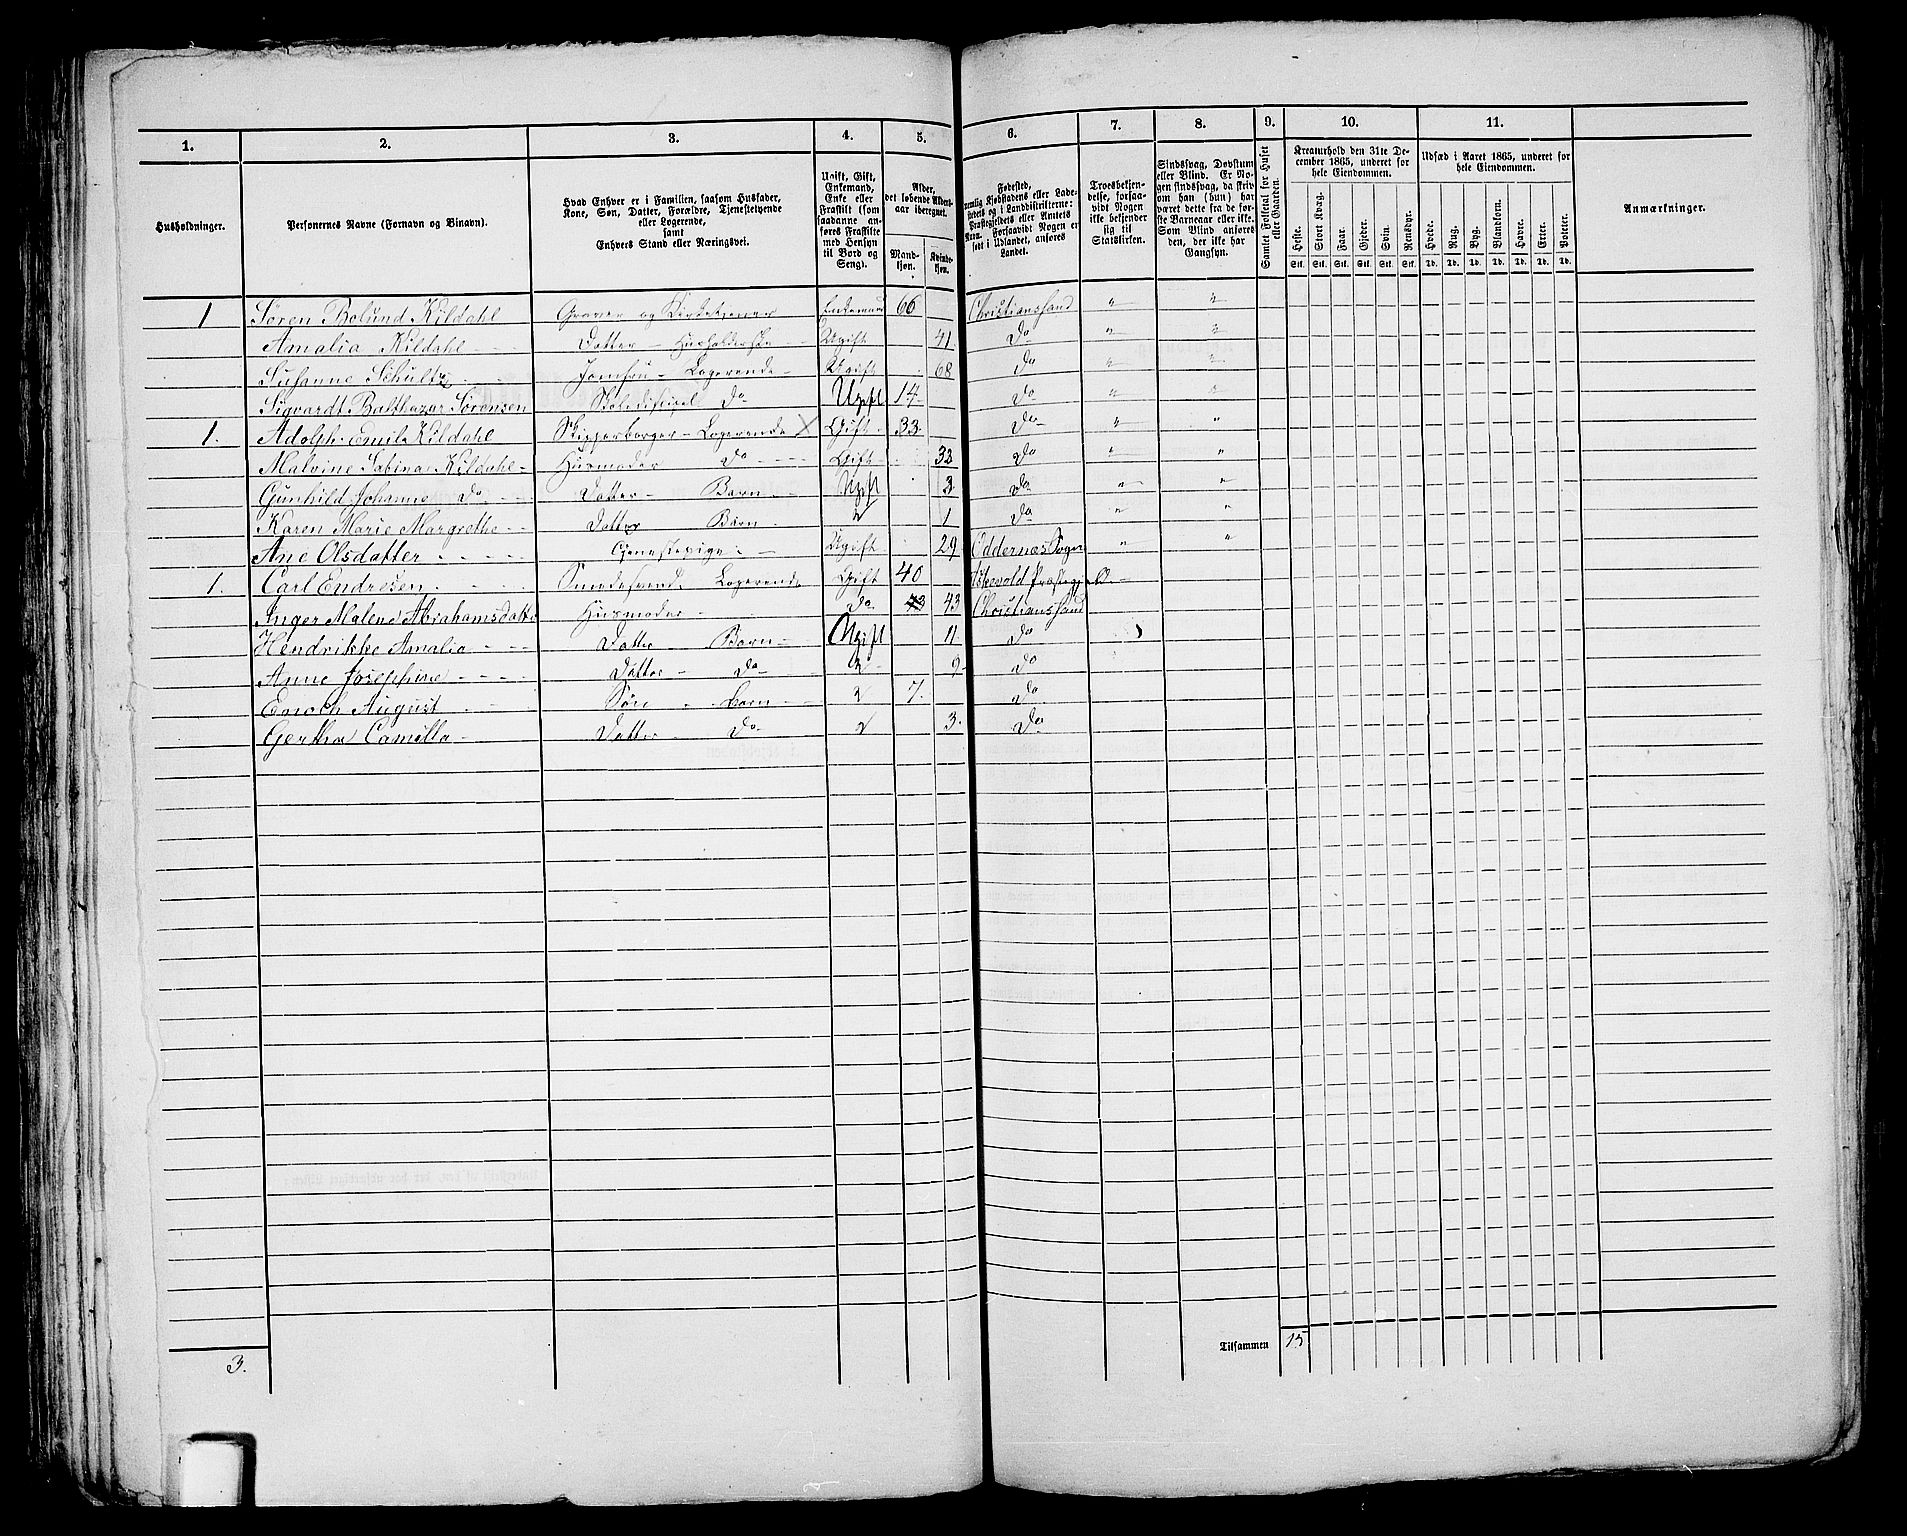 1. 2. 3. 4. 5. 6. 7. 8. 9. 10. 11.
Husholdninger.
Personernes Navne (Fornavn og Binavn).
Hvad Enhver er i Familien, saasom Husfader,
Kone, Søn, Datter, Forældre, Tjenestetyende
eller Logerende,
samt
Enhvers Stand eller Næringsvei.
Ugift, Gift,
Enkemand,
Enke eller
Fraskilt (som
saadanne an-
føres Fraskilte
med Hensyn
til Bord og
Seng).
Alder,
det løbende Alders-
aar iberegnet.
Mand-
kjøn.
Kvinde-
kjøn.
Fødested,
nemlig Kjøbstadens eller Lade-
stedets og i Landdistrikterne:
Præstegjeldets eller Amtets
Navn. Forsaavidt Nogen er
født i Udlandet, anføres
Landet.
Troesbekjen-
delse, forsaa-
vidt Nogen
ikke bekjender
sig til
Statskirken.
Sindssvag, Døvstum
eller Blind. Er No-
gen sindssvag, da skriv
om han (hun) har
været dette fra de før-
ste Barneaar eller ikke.
Som Blind anføres
den, der ikke har
Gangsyn.
Samlet Folketal for Huset
eller Gaarden.
Kreaturhold den 31te De-
cember 1865, underet for
hele Eiendommen.
Heste. Stort Kvæg. Faar. Gjeder. Svin. Rensdyr.
Stk. Stk. Stk. Stk. Stk. Stk.
Udsæd i Aaret 1865, underet for
hele Eiendommen.
Hvede. Rug. Byg. Blandkorn. Havre. Erter. Poteter.
Td. Td. Td. Td. Td. Td. Td.
Anmærkninger.
1 Søren Bolund Kildahl Graver og Kirketjener Enkemand 66 Christianssand " "
Amalia Kildahl Datter - Husholderske Ugift 41 Do " "
Susanne Schultz Jomfru - Logerende Ugift 68 Do " "
Sigvardt Balthazar Sørensen Skoledisipel Do Ugift 14 Do " "
1. Adolph Emil Kildahl Skipperborger - Logerende X Gift 33 Do " "
Malvine Sabina Kildahl Husmoder Do Gift 32 Do " "
Gunhild Johanne Do Datter - Barn Ugift 3 Do " "
Karen Marie Margrethe Datter Barn 1 Do " "
Ane Olsdatter Tjenestepige Ugift 29 Oddernæs Sogn " "
1. Carl Endresen Smedesvend Logerende Gift 40
Inger Malene Abrahamsdatter Husmoder Do 43 43 Christianssand
Hendrikke Amalia Datter Barn Ugift 11 Do
Anne Josephine Datter Do 9 Do
Enoch August Søn Barn 7. Do
Gertha Camilla Datter Do 3. Do
Tilsammen 15
3.